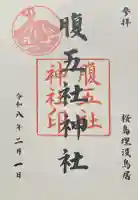 参拝
桜島埋没鳥居
腹五社神社
腹五社
神社印
令和八年二月一日